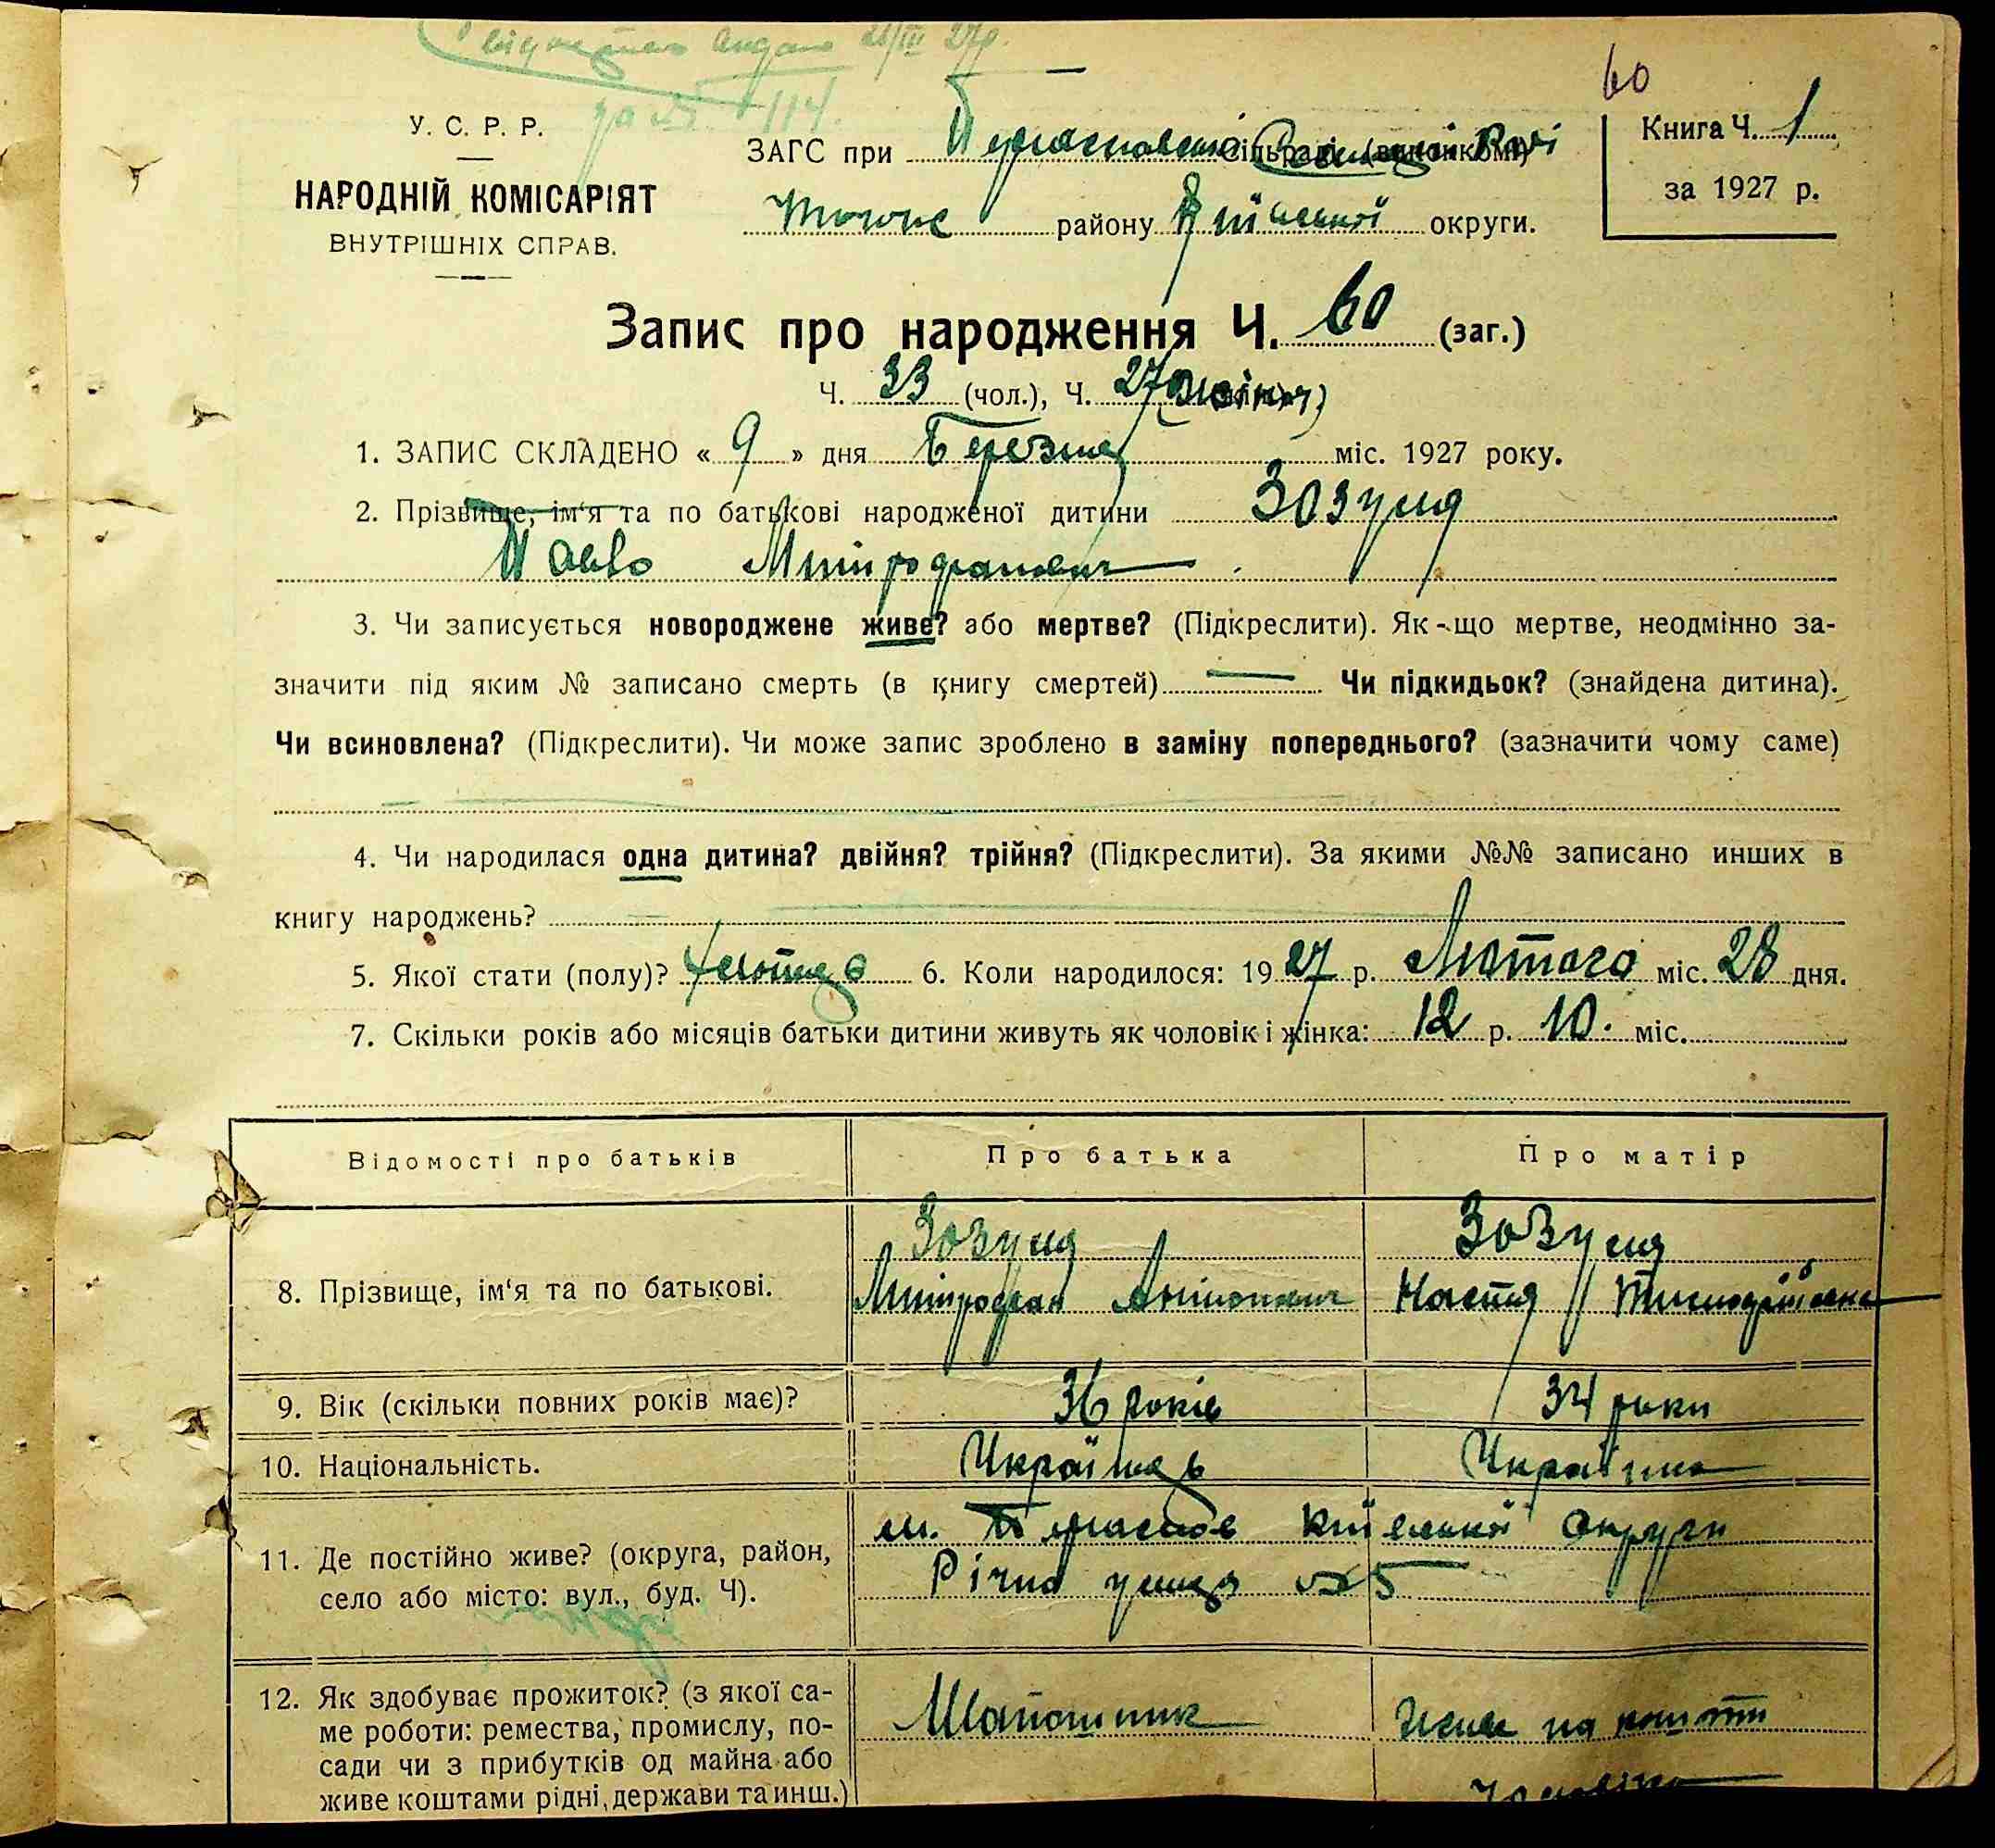 видано 21/III 27р.
за № 114.
60
У. С. Р. Р.
НАРОДНІЙ КОМІСАРІЯТ
ВНУТРІШНІХ СПРАВ.
ЗАГС при Сільраді (виконкомі) Раді
району Київської округи.
Книга Ч. 1
за 1927 р.
Запис про народження Ч. 60 (заг.)
Ч. 33 (чол.), Ч. 27 (жіноч)
1. ЗАПИС СКЛАДЕНО « 9 » дня Березня міс. 1927 року.
2. Прізвище, ім‘я та по батькові народженої дитини Зозуля
Павло Митрофанович
3. Чи записується новороджене живе? або мертве? (Підкреслити). Як-що мертве, неодмінно за-
значити під яким № записано смерть (в книгу смертей) — Чи підкидьок? (знайдена дитина).
Чи всиновлена? (Підкреслити). Чи може запис зроблено в заміну попереднього? (зазначити чому саме)
4. Чи народилася одна дитина? двійня? трійня? (Підкреслити). За якими №№ записано инших в
книгу народжень?
5. Якої стати (полу)? 6. Коли народилося: 1927 р. Лютого міс. 28 дня.
7. Скільки років або місяців батьки дитини живуть як чоловік і жінка: 12 р. 10. міс.
Відомості про батьків Про батька Про матір
8. Прізвище, ім‘я та по батькові. Зозуля Зозуля
Митрофан Антонович Настя Тимофіївна
9. Вік (скільки повних років має)? 36 років 34 роки
10. Національність. Українець Українка
11. Де постійно живе? (округа, район,
село або місто: вул., буд. Ч).
м. Київської округи
Річна улиця № 5
12. Як здобуває прожиток? (з якої са-
ме роботи: ремества, промислу, по-
сади чи з прибутків од майна або
живе коштами рідні, держави та инш.)
Шапошник Живе на кошти
чоловіка